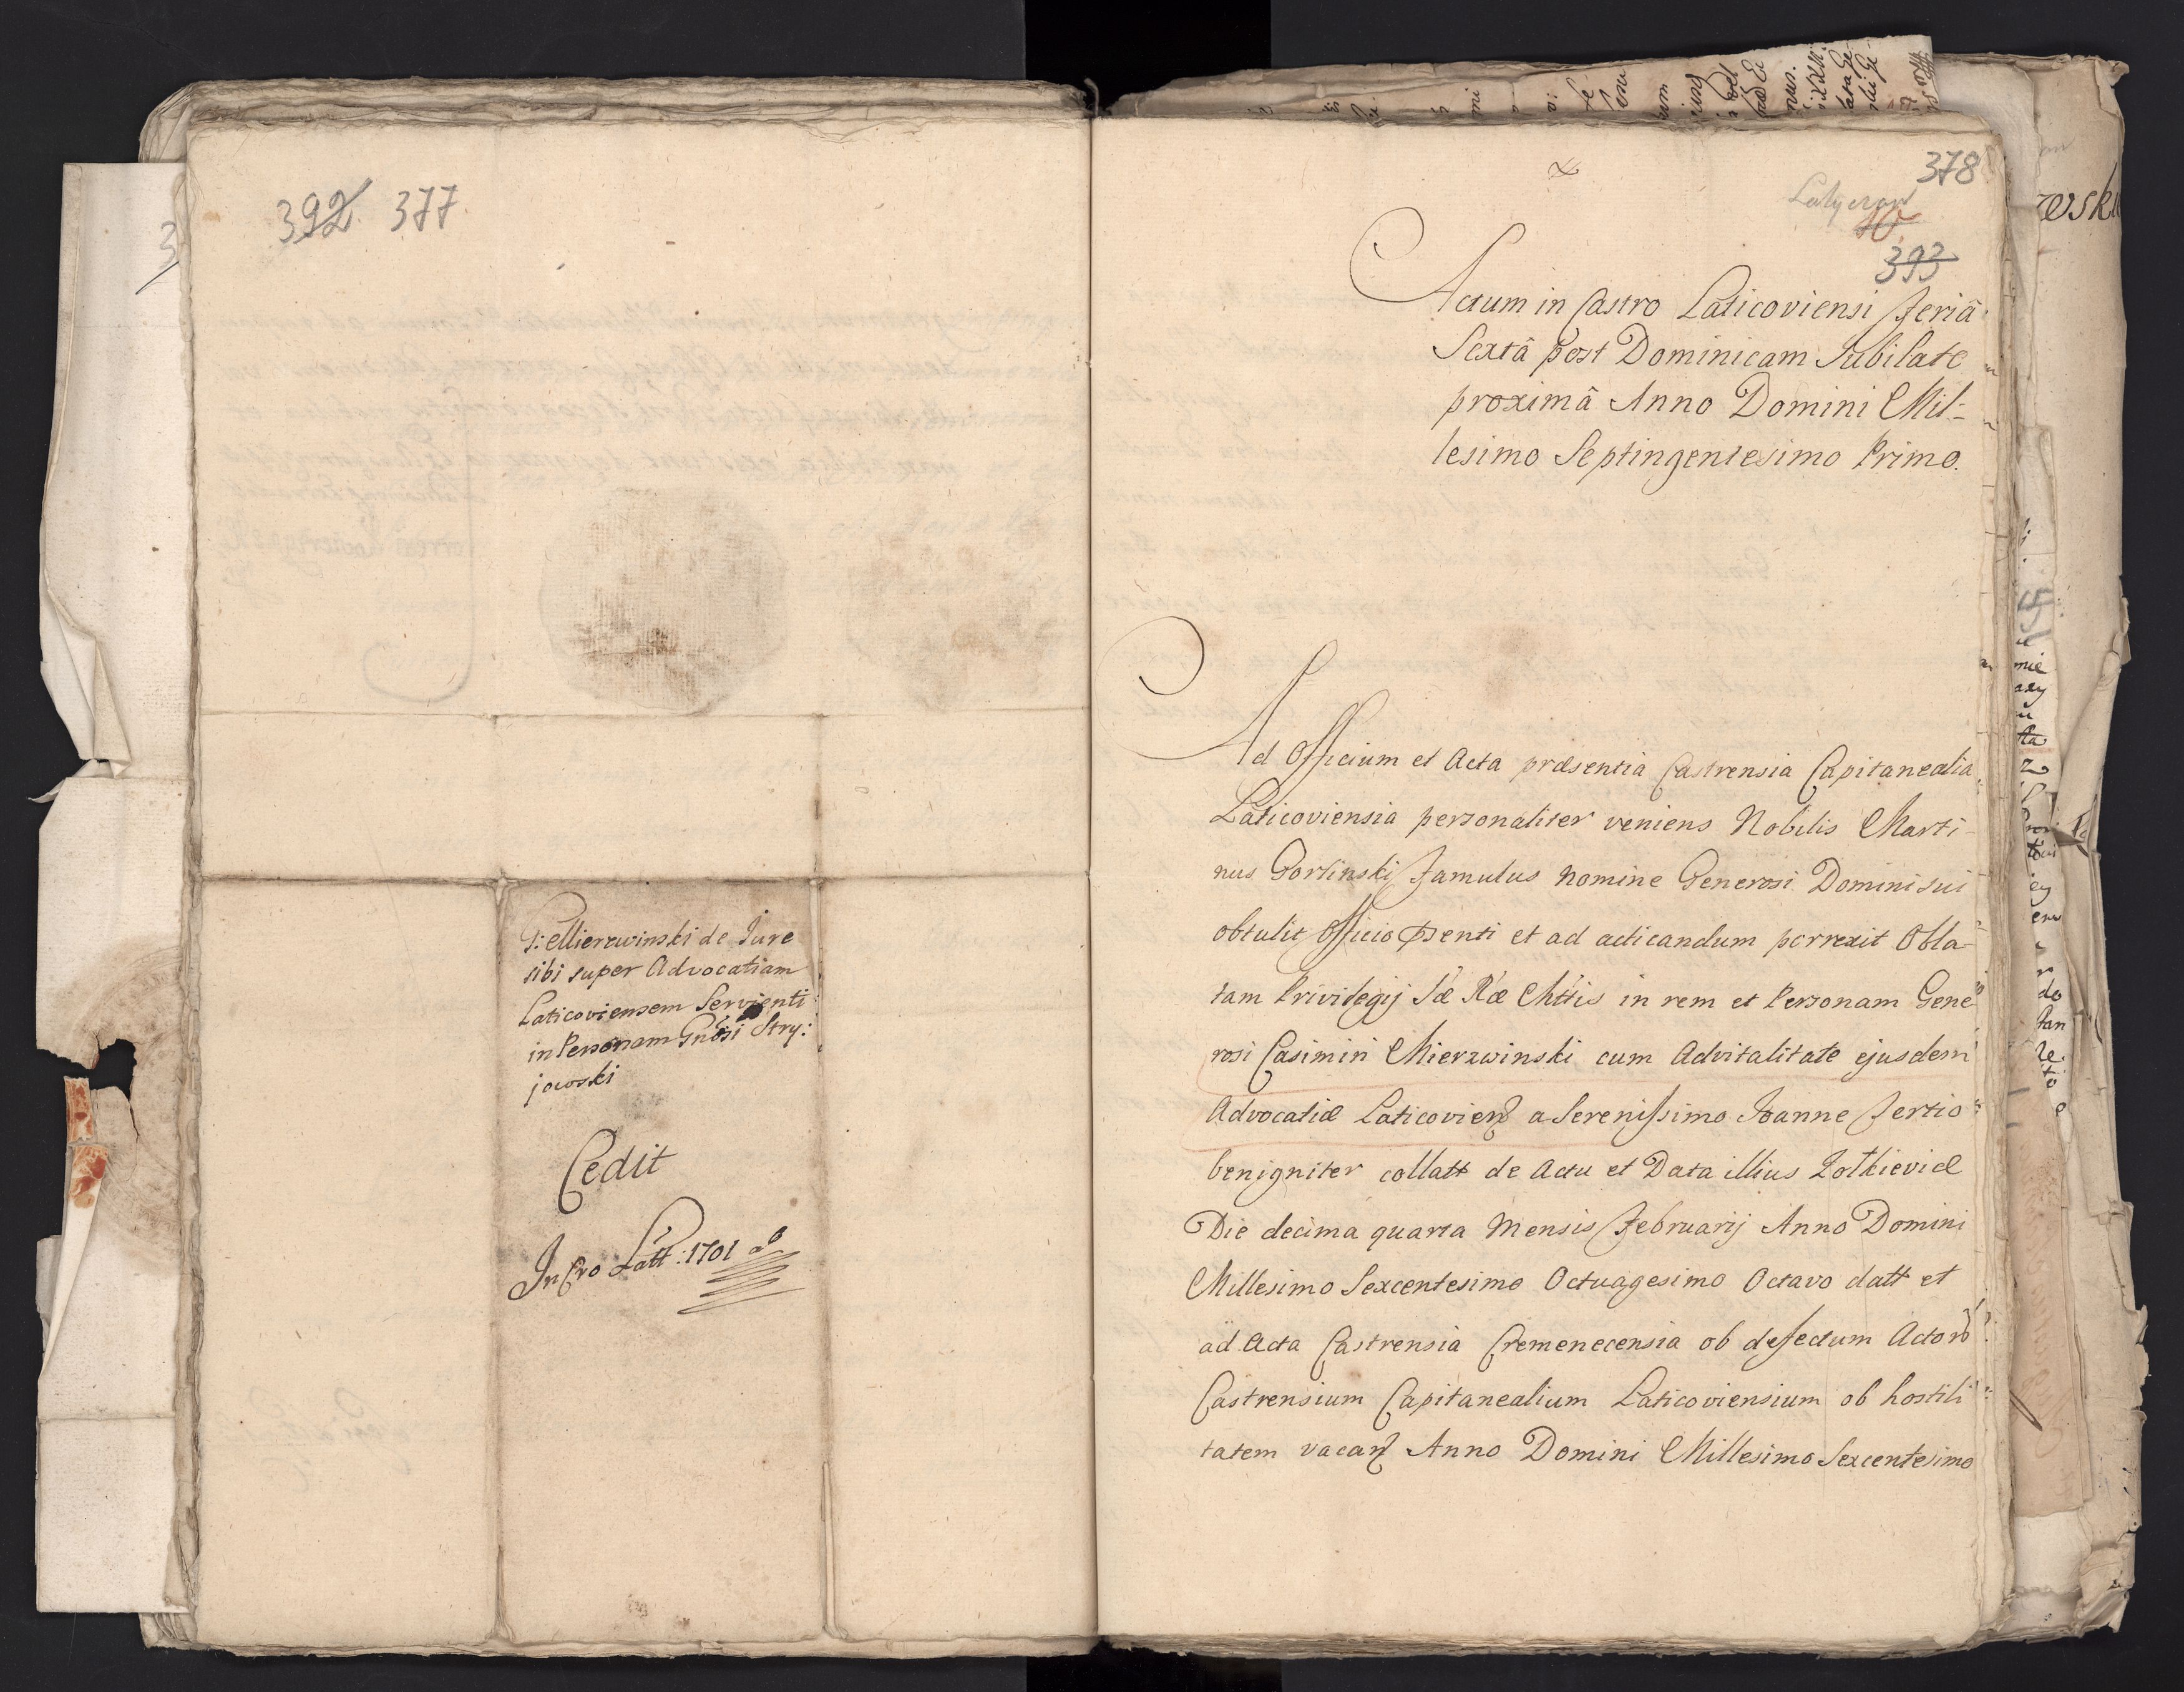 392 377.
G: Mierzwinski de Jure
sibi super Advocatiam
Laticoviensem Servienti
in Personam Gnosi Stry:
jowski
Cedit
In Cro Latt: 1701
378
Latyczow
10
393
Actum in Castro Laticoviensi Feriâ
Sextâ post Dominicam Jubilate
proximâ Anno Domini Mil-
lesimo Septingentesimo Primo.
Ad Officium et Acta præsentia Castrensia Capitanealia
Laticoviensia personaliter veniens Nobilis Marti-
nus Gorlinski Famulus Nomine Generosi Domini sui
obtulit Officio psenti et ad acticandum porrexit Obla-
tam Privilegij Sæ Ræ Mttis in rem et Personam Gene
rosi Casimiri Mierzwinski cum Advitalitate ejusdem
Advocatiæ Laticovien a Serenissimo Joanne Tertio
benigniter collatt de Actu et Data illius Zolkieviæ
Die decima quarta Mensis Februarij Anno Domini
Millesimo Sexcentesimo Octuagesimo Octavo datt et
ad Acta Castrensia Cremenecensia ob defectum Actorũ
Castrensium Capitanealium Laticoviensium ob hostili
tatem vacan Anno Domini Millesimo Sexcentesimo